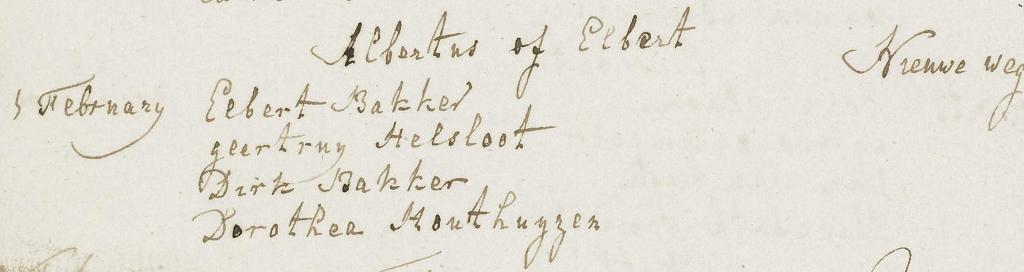 Albertus of Elbert
Nieuwe weg
5 February Elbert Bakker
geertruy Helsloot
Dirk Bakker
Dorothea Houthuyzen